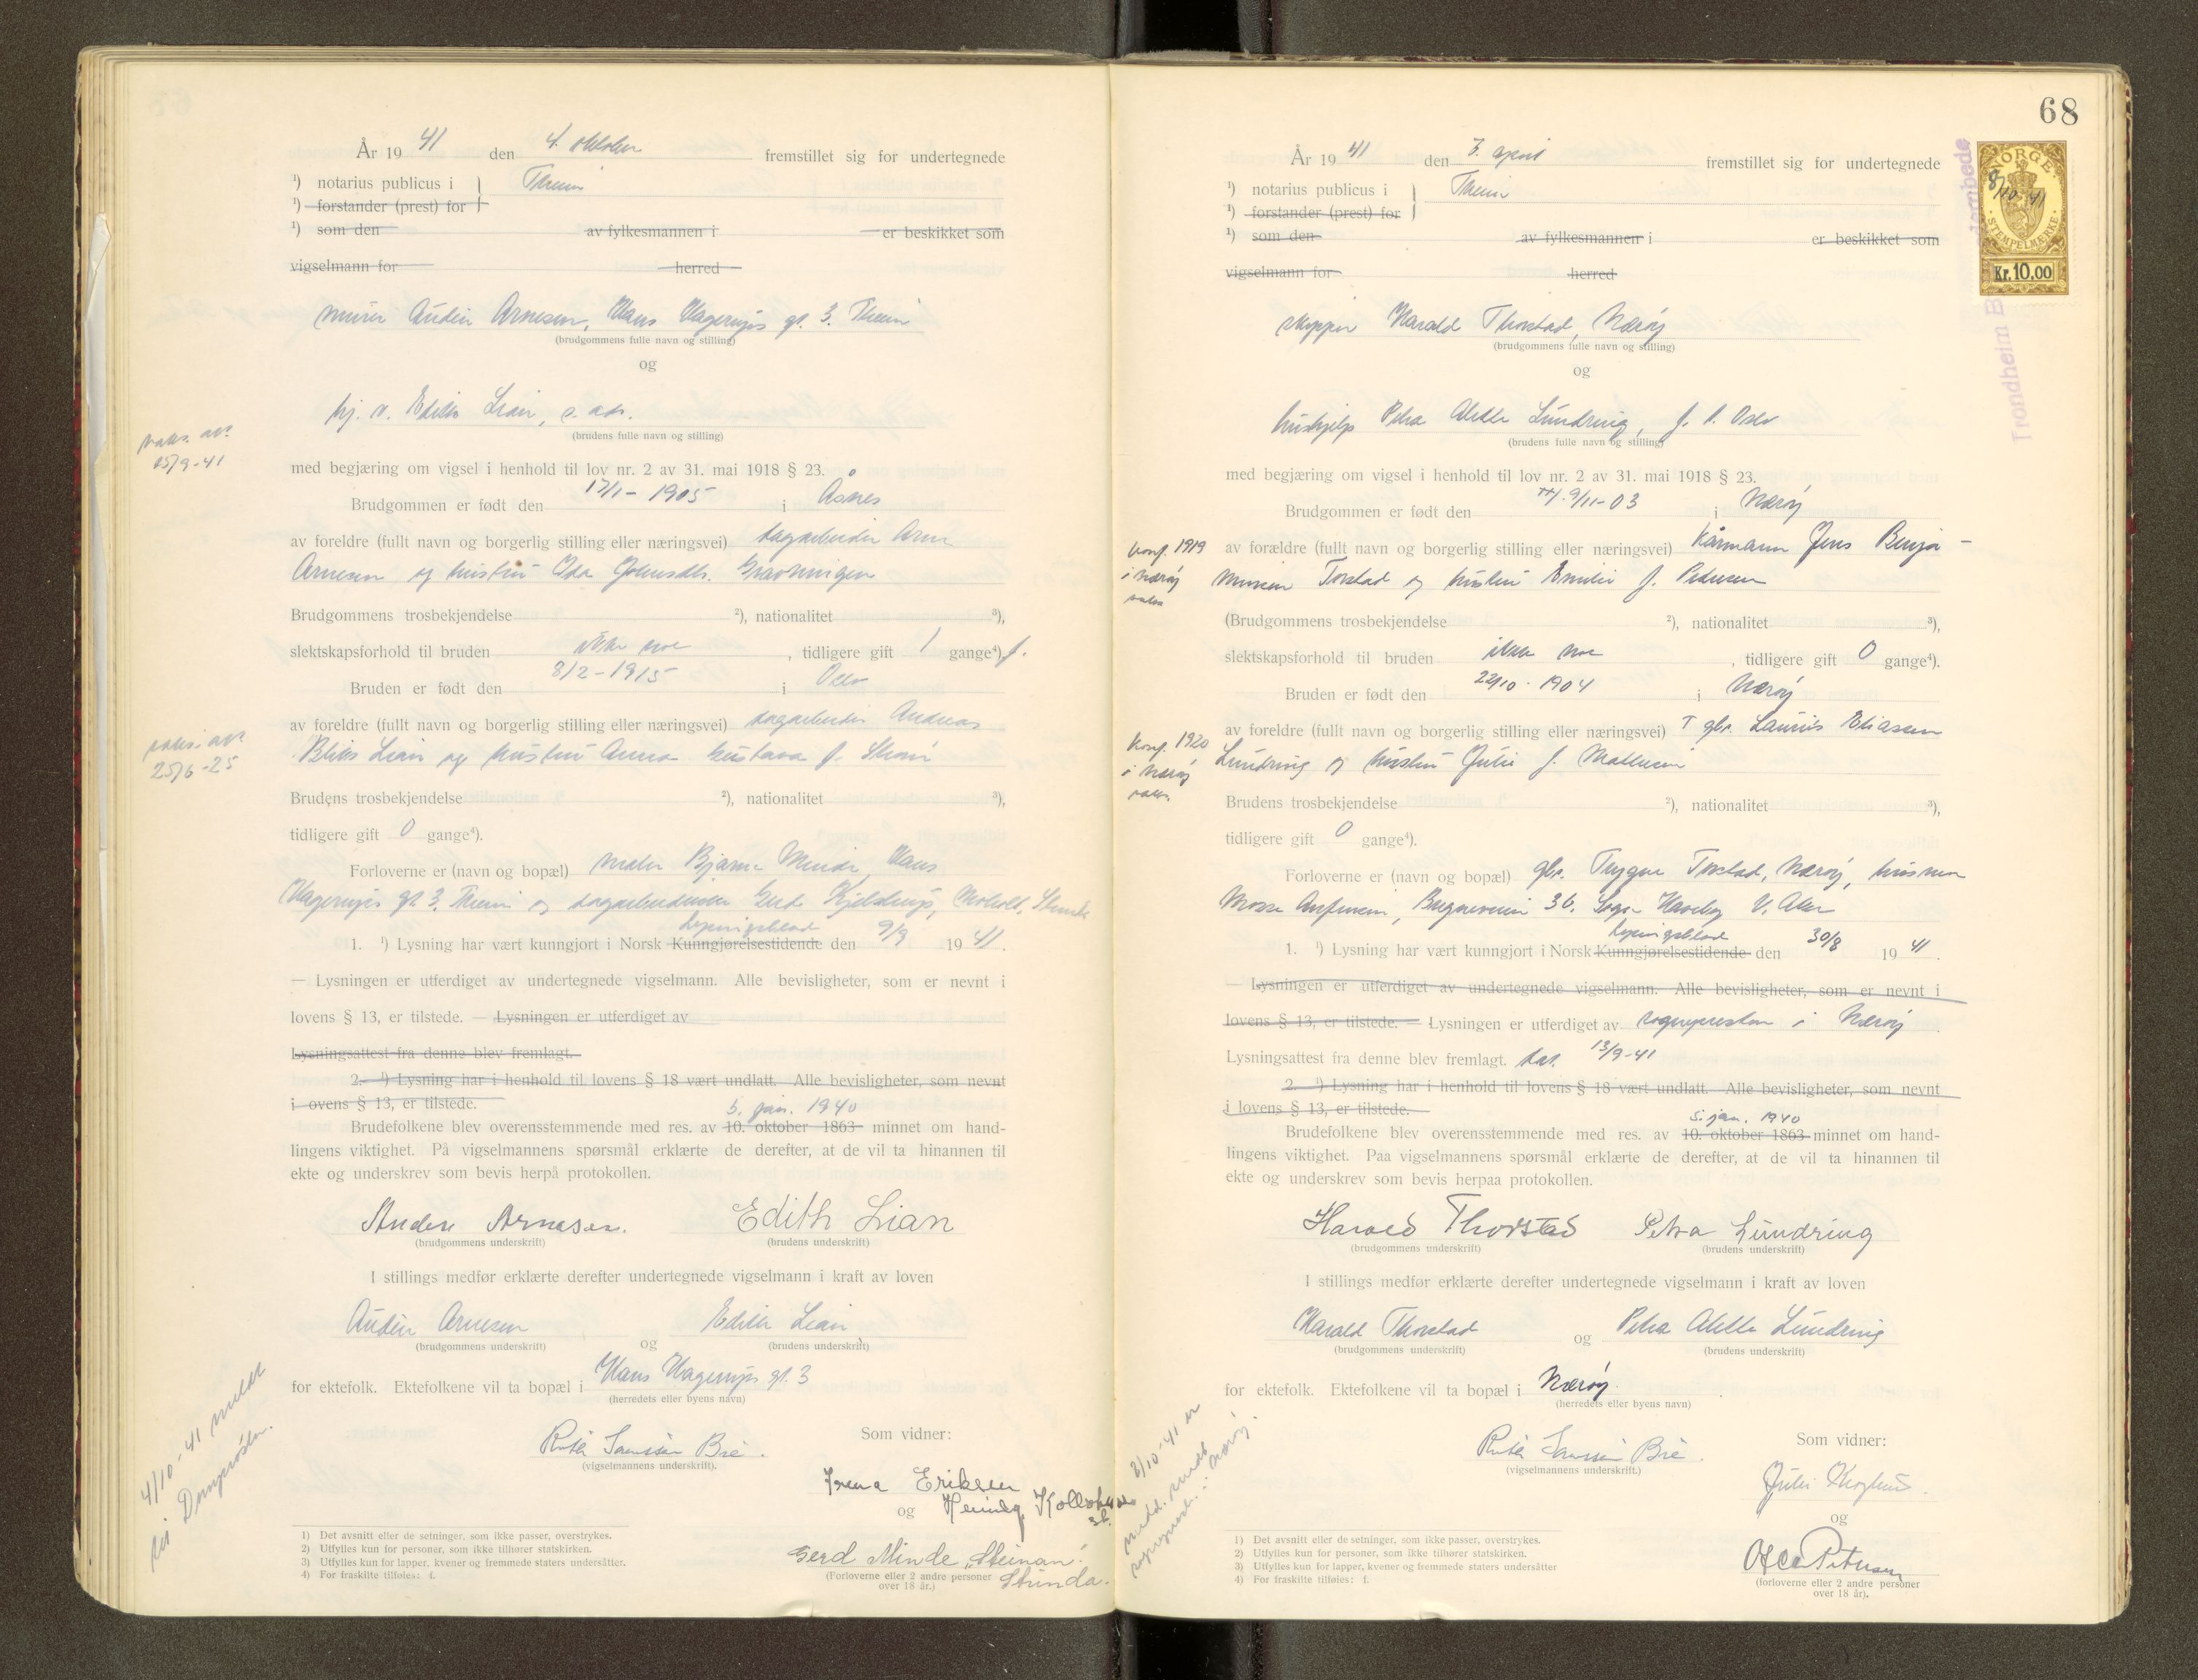 År 19 41 den 4. oktober fremstillet sig for undertegnede
¹) notarius publicus i } Theim
¹) forstander (prest) for
¹) som den av fylkesmannen i er beskikket som
vigselmann for herred
murer Audun Arnesen, Hans Hagerups gt. 3. Theim
(brudgommens fulle navn og stilling)
og
hj. v. Edith Lian, s. adr.
(brudens fulle navn og stilling)
vaks. att.
15/9-41
med begjæring om vigsel i henhold til lov nr. 2 av 31. mai 1918 § 23.
Brudgommen er født den 17/1-1905 i Åsnes
av foreldre (fullt navn og borgerlig stilling eller næringsvei) dagarbeider Arne
Arnesen og hustru Ida Johnsdtr.
Brudgommens trosbekjendelse ²), nationalitet ³),
slektskapsforhold til bruden ikke noe, tidligere gift 1 gange⁴) f.
Bruden er født den 8/2-1915 i Oslo
av foreldre (fullt navn og borgerlig stilling eller næringsvei) dagarbeider Andreas
Lian og hustru Anna Gustava f.
25/6-25
Brudens trosbekjendelse ²), nationalitet ³),
tidligere gift 0 gange⁴).
Forloverne er (navn og bopæl) maler Bjarne Minde, Hans
Hagerups gt. 3. Theim og dagarbeiderske Gerd Kjelstrup, Moholt, Strinda
lysingsblad
1. ¹) Lysning har vært kunngjort i Norsk Kunngjørelsestidende den 9/9 19 41.
— Lysningen er utferdiget av undertegnede vigselmann. Alle bevisligheter, som er nevnt i
lovens § 13, er tilstede. — Lysningen er utferdiget av
Lysningsattest fra denne blev fremlagt.
2. ¹) Lysning har i henhold til lovens § 18 vært undlatt. Alle bevisligheter, som nevnt
i ovens § 13, er tilstede.
5. jan. 1940
Brudefolkene blev overensstemmende med res. av 10. oktober 1863 minnet om hand-
lingens viktighet. På vigselmannens spørsmål erklærte de derefter, at de vil ta hinannen til
ekte og underskrev som bevis herpå protokollen.
Audun Arnesen. Edith Lian
(brudgommens underskrift) (brudens underskrift)
I stillings medfør erklærte derefter undertegnede vigselmann i kraft av loven
Audun Arnesen og Edith Lian
(brudgommens underskrift) (brudens underskrift)
for ektefolk. Ektefolkene vil ta bopæl i Hans Hagerups gt. 3
(herredets eller byens navn)
4/10-41 meldt
til Domprosten.
Ruth Bré.
(vigselmannens underskrift).
Som vidner:
Irena Eriksen
og
Gerd Minde "Steinan"
Strinda.
(Forloverne eller 2 andre personer
over 18 år.)
1) Det avsnitt eller de setninger, som ikke passer, overstrykes.
2) Utfylles kun for personer, som ikke tilhører statskirken.
3) Utfylles kun for lapper, kvener og fremmede staters undersåtter.
4) For fraskilte tilføies: f.
68
NORGE
8/10-41
STEMPELMERKE
Kr. 10,00
Trondheim B dombede
År 19 41 den april fremstillet sig for undertegnede
¹) notarius publicus i } Theim
¹) forstander (prest) for
¹) som den av fylkesmannen i er beskikket som
vigselmann for herred
skipper Harald Thorstad, Nærøy
(brudgommens fulle navn og stilling)
og
hushjelp Petra Alette Lundring, f. t. Oslo
(brudens fulle navn og stilling)
med begjæring om vigsel i henhold til lov nr. 2 av 31. mai 1918 § 23.
Brudgommen er født den 9/11-03 i Nærøy
konf. 1919
i Nærøy
vaks.
av forældre (fullt navn og borgerlig stilling eller næringsvei) Kårmann Jens Benja-
minsen Torstad og hustru Emilie f. Pedersen
(Brudgommens trosbekjendelse ²), nationalitet ³),
slektskapsforhold til bruden ikke noe, tidligere gift 0 gange⁴).
Bruden er født den 22/10-1904 i Nærøy
av foreldre (fullt navn og borgerlig stilling eller næringsvei) gbr. Laurits Eliassen
Lundring og hustru Julie f.
konf. 1920
i Nærøy
vaks.
Brudens trosbekjendelse ²), nationalitet ³),
tidligere gift 0 gange⁴).
Forloverne er (navn og bopæl) gbr. Trygve Torstad, Nærøy, husmor
36. V. Aker
lysingsblad
1. ¹) Lysning har vært kunngjort i Norsk Kunngjørelsestidende den 30/8 19 41.
— Lysningen er utferdiget av undertegnede vigselmann. Alle bevisligheter, som er nevnt i
lovens § 13, er tilstede. — Lysningen er utferdiget av sognepresten i Nærøy
Lysningsattest fra denne blev fremlagt. dat. 13/9-41
2. ¹) Lysning har i henhold til lovens § 18 vært undlatt. Alle bevisligheter, som nevnt
i lovens § 13, er tilstede.
5. jan. 1940
Brudefolkene blev overensstemmende med res. av 10. oktober 1863 minnet om hand-
lingens viktighet. Paa vigselmannens spørsmål erklærte de derefter, at de vil ta hinannen til
ekte og underskrev som bevis herpaa protokollen.
Harald Thorstad Petra Lundring
(brudgommens underskrift) (brudens underskrift)
I stillings medfør erklærte derefter undertegnede vigselmann i kraft av loven
Harald Thorstad og Petra Alette Lundring
(brudgommens underskrift) (brudens underskrift)
for ektefolk. Ektefolkene vil ta bopæl i Nærøy
(herredets eller byens navn)
8/10-41 er
medd. sendt
sogneprest. i Nærøy.
Ruth Bré.
(vigselmannens underskrift.)
Som vidner:
Julie
og
(forloverne eller 2 andre personer
over 18 år).
1) Det avsnitt eller de setninger, som ikke passer, overstrykes.
2) Utfylles kun for personer, som ikke tilhører statskirken.
3) Utfylles kun for lapper, kvener og fremmede staters undersåtter
4) For fraskilte tilføies: f.